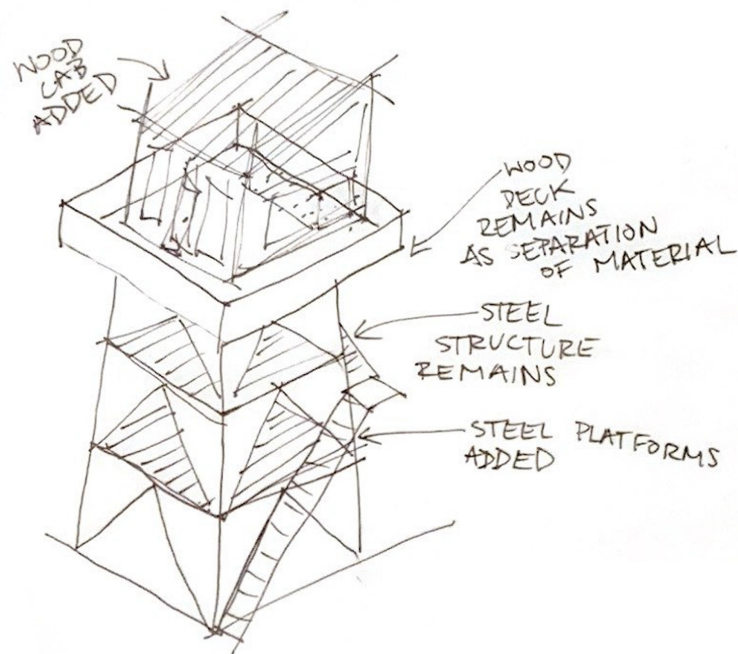 WOOD
CAB
ADDED
WOOD
DECK
REMAINS
AS SEPARATION
OF MATERIAL
STEEL
STRUCTURE
REMAINS
STEEL PLATFORMS
ADDED